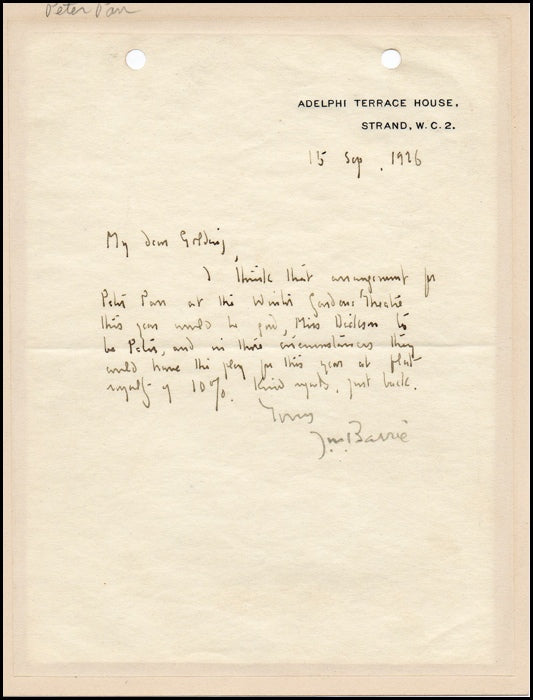 Peter Pan
ADELPHI TERRACE HOUSE,
STRAND, W.C. 2.
15 Sep. 1926
My dear Golding,
I think that arrangement for
Peter Pan at the Winter Gardens Theatre
this year would be good, Miss Dickson to
be Peter, and in these circumstances they
could have the play for this year at flat
royalty of 10%. Kind regards, just back.
Yours
J.M. Barrie